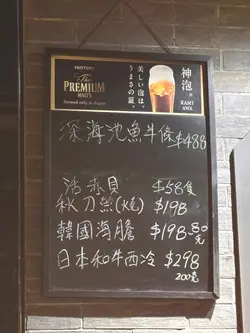 SUNTORY
The
PREMIUM
MALT'S
Brewed only in Japan
美しい泡は、
うまさの証。
神泡。
KAMI
AWA
深海池魚牛條$488
活赤貝 $58隻
秋刀魚 $198
韓國海膽 $198 50克
日本和牛西冷 $298
200克